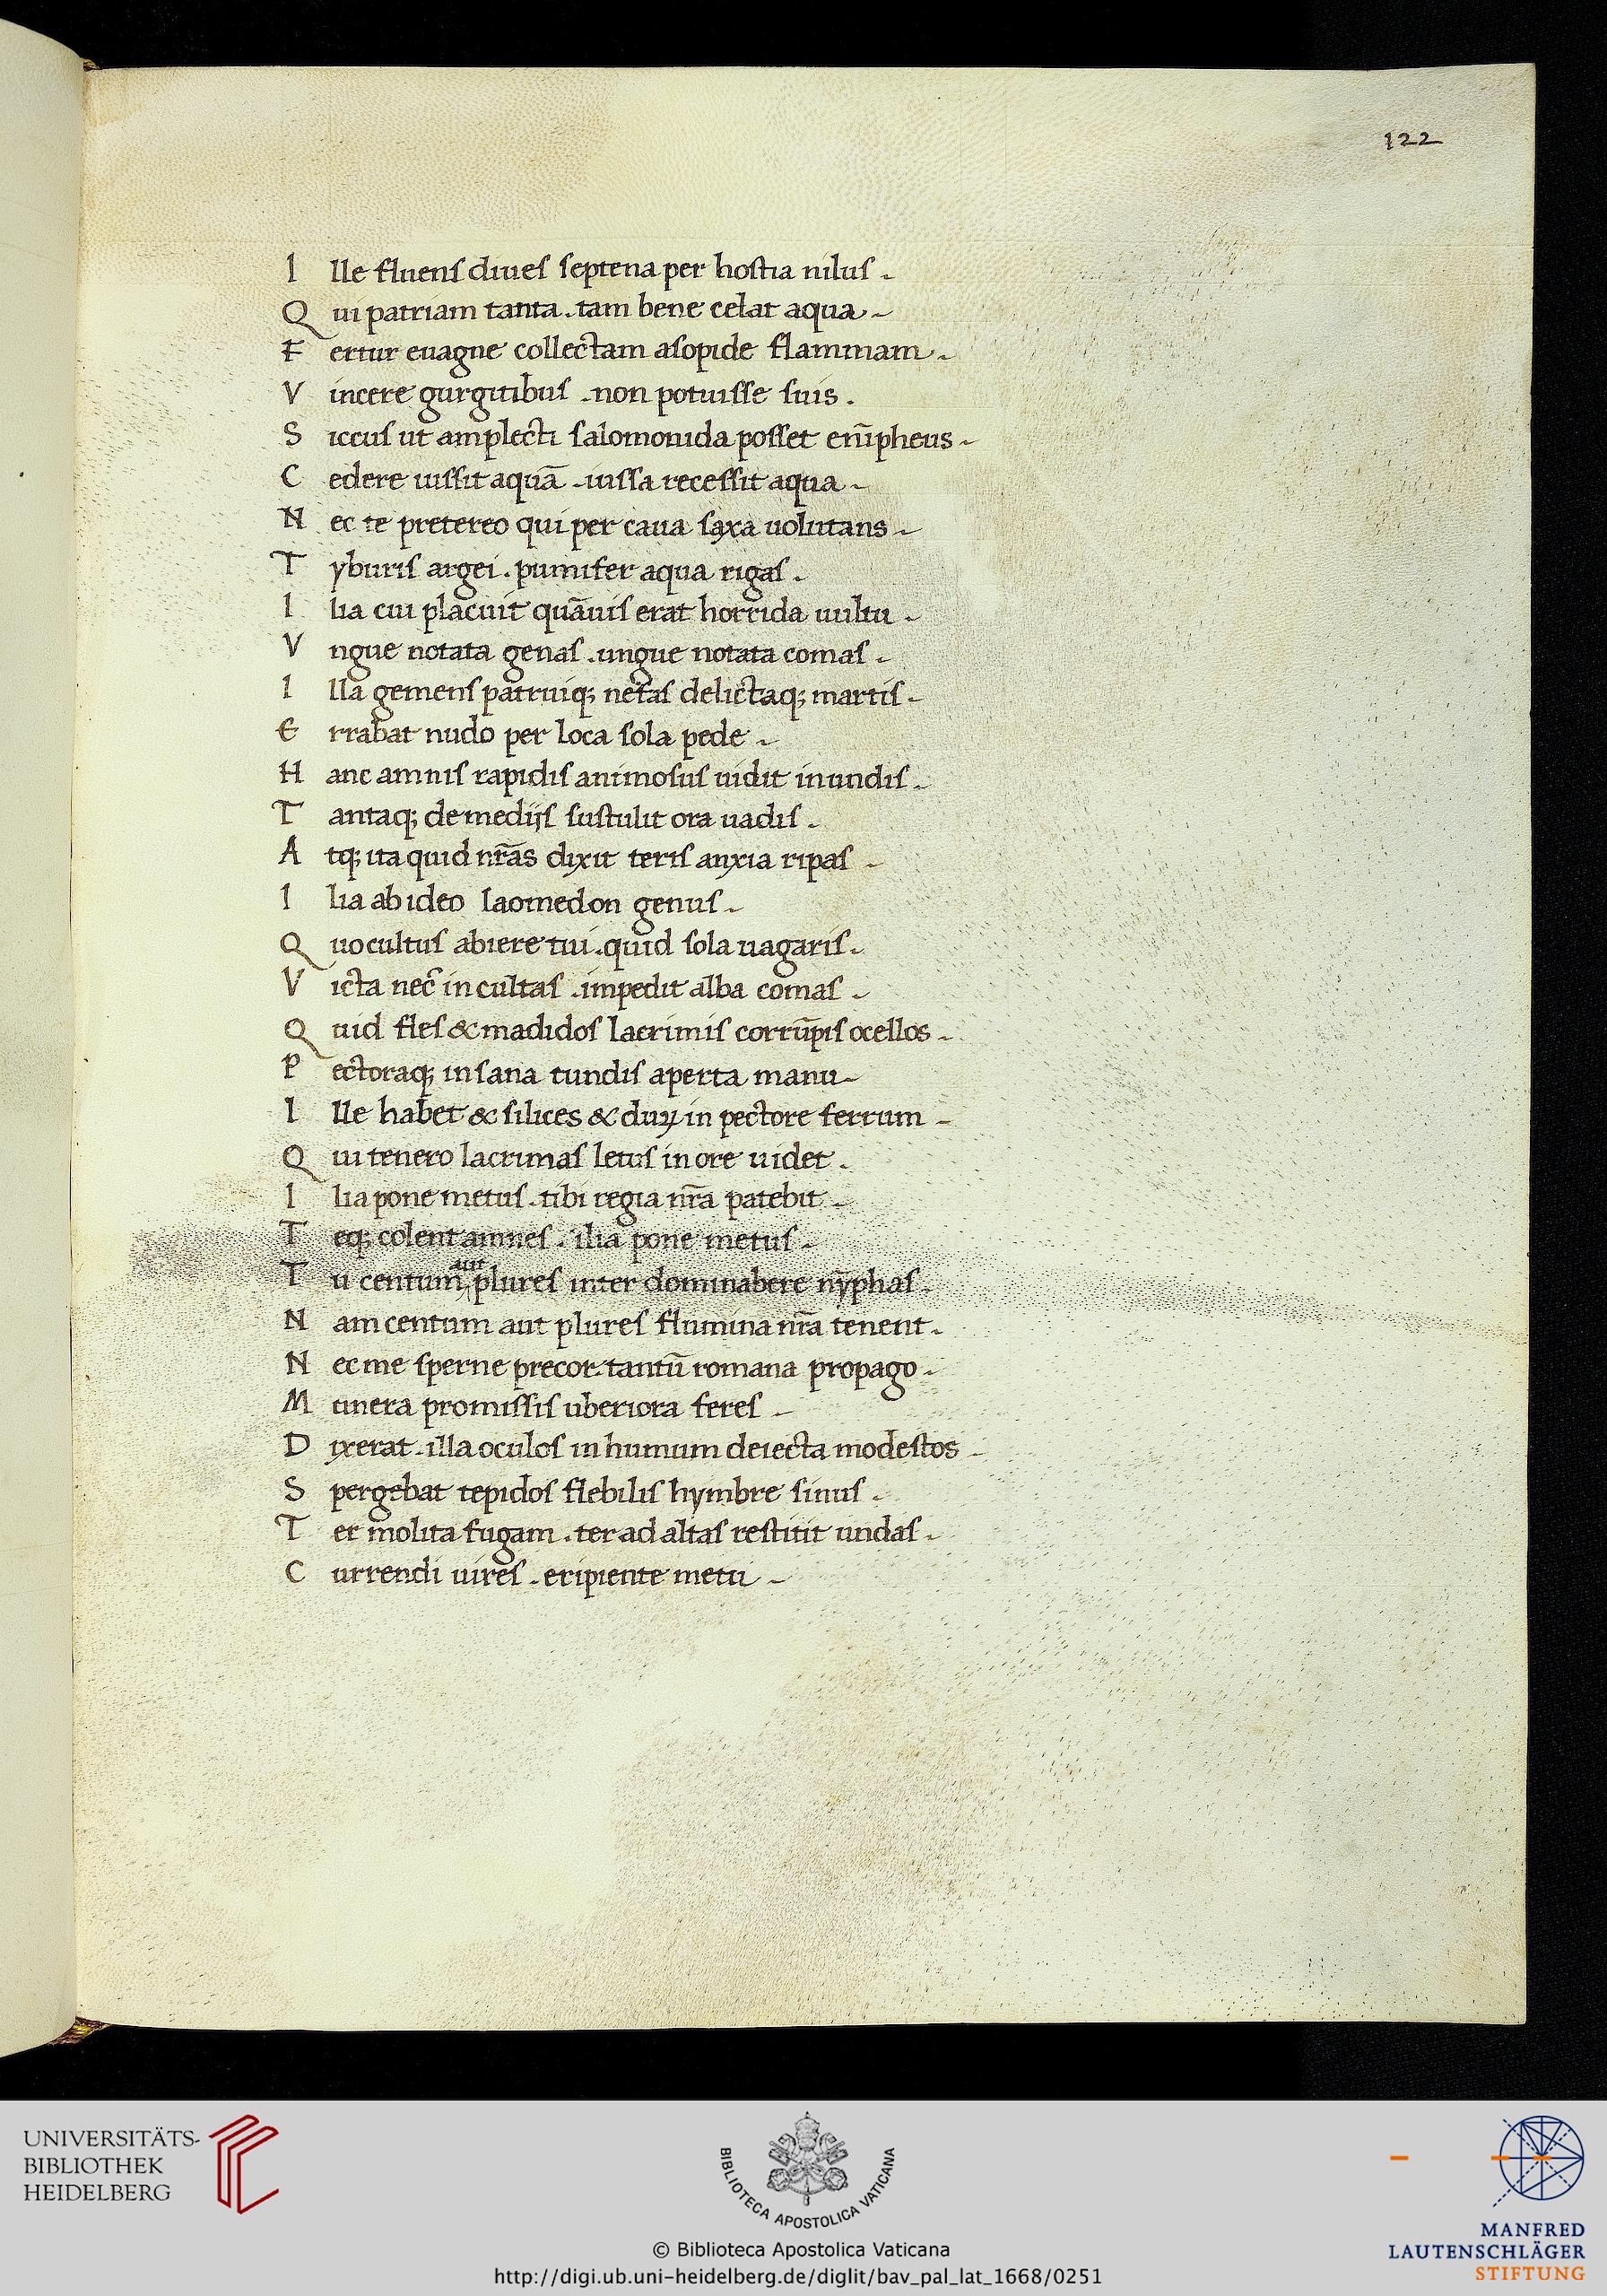 122
Ille fluens diues septena per hostia nilus .
Qui patriam tanta . tam bene celat aqua .
Fertur euagne collectam asopide flammam .
Vincere gurgitibus . non potuisse suis .
Siccus ut amplecti salomonida posset enīpheus .
Cedere iussit aquā . iussa recessit aqua .
Nec te pretereo qui per caua saxa uolutans .
Tyburis argei . pumifer aqua rigas .
Ilia cui placuit quāuis erat horrida uultu .
Vngue notata genas . ungue notata comas .
Illa gemens patruiq; nefas delictaq; martis .
Errabat nudo per loca sola pede .
Hanc amnis rapidis animosus uidit in undis .
Tantaq; de medijs sustulit ora uadis .
Atq; ita quid nr̄as dixit teris anxia ripas .
Ilia ab ideo laomedon genus .
Quo cultus abiere tui . quid sola uagaris .
Victa nec̄ in cultas . impedit alba comas .
Quid fles & madidos lacrimis corrūpis ocellos .
Pectoraq; insana tundis aperta manu .
Ille habet & silices & duꝝ in pectore ferrum .
Qui tenero lacrimas letus in ore uidet .
Ilia pone metus . tibi regia nr̄a patebit .
Teq; colent amnes . ilia pone metus .
Tu centum aut plures inter dominabere nȳphas .
Nam centum aut plures flumina nr̄a tenent .
Nec me sperne precor . tantū romana propago .
Munera promissis uberiora feres .
Dixerat . illa oculos in humum deiecta modestos .
Spergebat tepidos flebilis hymbre sinus .
Ter molita fugam . ter ad altas restitit undas .
Currendi uires . eripiente metu .
UNIVERSITÄTS-
BIBLIOTHEK
HEIDELBERG
BIBLIOTECA APOSTOLICA VATICANA
© Biblioteca Apostolica Vaticana
http://digi.ub.uni-heidelberg.de/diglit/bav_pal_lat_1668/0251
MANFRED
LAUTENSCHLÄGER
STIFTUNG